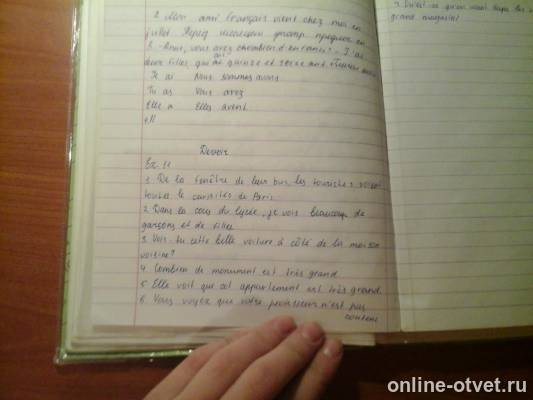 2. Mon ami français vient chez moi en
juillet
3. -Anne, vous avez chombien d'enfants? - J'ai
deux filles, qui ont quinze et seize ans.
Je ai Nous sommes avons
Tu as Vous avez
Elle a Elles avent
Devoir
Ex. 11
1. De la fenêtre de leur bus, les touristes
toutes le curisités de Paris
2. Dans la cour du lycée, je vois beaucoup de
garçons et de filles
3. Vois-tu cette belle voiture à côté de la maison
voisine?
4. Combien de monument est très grand
5. Elle voit que cet appartement est très grand
6. Vous voyez que votre professeur n'est pas
content
grand magasin?
online-otvet.ru